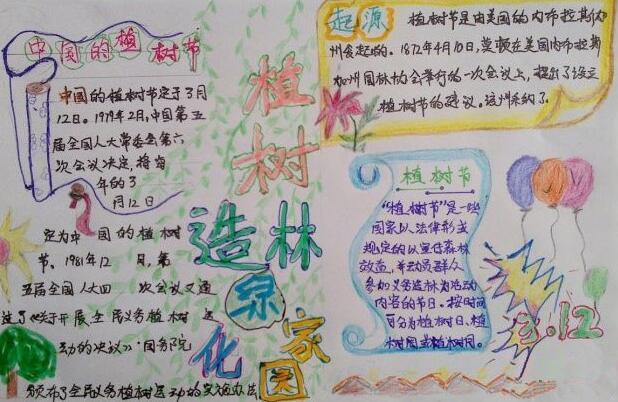 中国的植树节
中国的植树节定于3月
12日。1979年2月,中国第五
届全国人大常委会第六
次会议决定,将每
年的3
月12日
定为中国的植树
节、1981年12月,第
五届全国人大四次会议又通
过了《关于开展全民义务植树运
动的决议》·国务院
颁布了全民义务植树运动的实施办法
植树
造林
绿
化
家
园
起源
植树节是由美国的内布拉斯加
州发起的。1872年4月10日,莫顿在美国内布拉斯
加州园林协会举行的一次会议上,提出了设立
植树节的建议。该州采纳了
植树节
“植树节”是一些
国家以法律形式
规定的以宣传森林
效益,并动员群众
参加义务造林为活动
内容的节日。按时间
可分为植树日、植
树周或植树月。
3.12